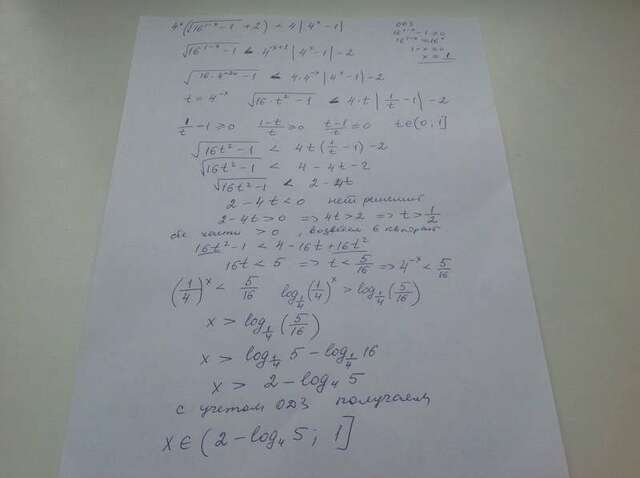 4ˣ(√(16¹⁻ˣ - 1) + 2) < 4|4ˣ - 1|
ОДЗ
16¹⁻ˣ - 1 ≥ 0
16¹⁻ˣ ≥ 16⁰
1 - x ≥ 0
x ≤ 1
√(16¹⁻ˣ - 1) < 4⁻ˣ⁺¹|4ˣ - 1| - 2
√(16·4⁻²ˣ - 1) < 4·4⁻ˣ|4ˣ - 1| - 2
t = 4⁻ˣ √(16·t² - 1) < 4·t|1/t - 1| - 2
1/t - 1 ≥ 0 (1-t)/t ≥ 0 (t-1)/t ≤ 0 t ∈ (0; 1]
√(16t² - 1) < 4t(1/t - 1) - 2
√(16t² - 1) < 4 - 4t - 2
√(16t² - 1) < 2 - 4t
2 - 4t < 0 нет решений
2 - 4t > 0 => 4t > 2 => t > 1/2
обе части > 0, возведем в квадрат
16t² - 1 < 4 - 16t + 16t²
16t < 5 => t < 5/16 => 4⁻ˣ < 5/16
(1/4)ˣ < 5/16 log_{1/4}(1/4)ˣ > log_{1/4}(5/16)
x > log_{1/4}(5/16)
x > log_{1/4} 5 - log_{1/4} 16
x > 2 - log₄ 5
с учетом ОДЗ получаем
x ∈ (2 - log₄ 5; 1]